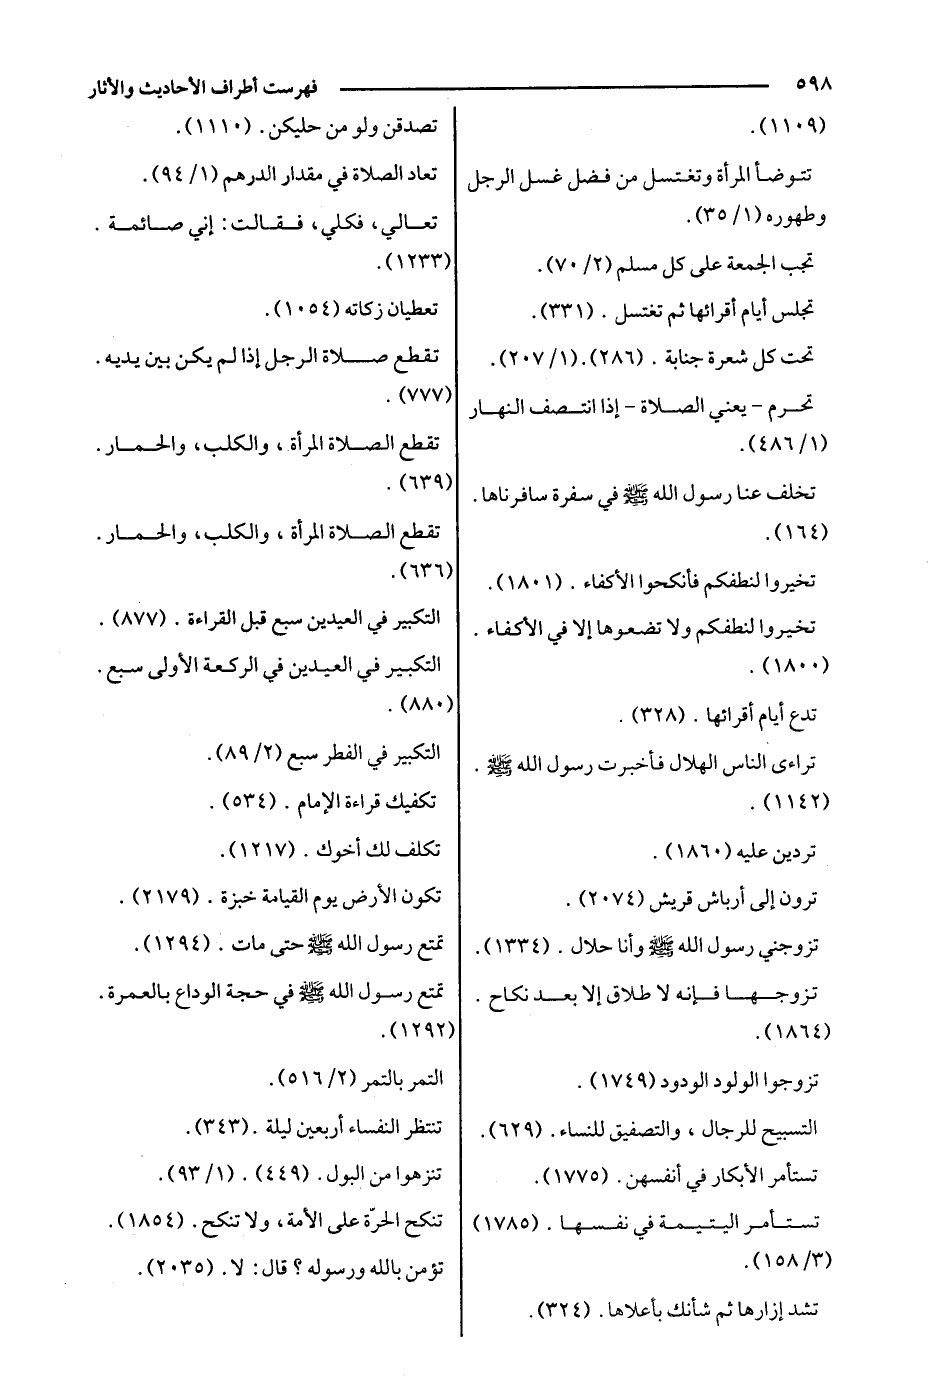 ٥٩٨ فهرست أطراف الأحاديث والأثار
(١١٠٩).
تتوضأ المرأة وتغتسل من فضل غسل الرجل
وطهوره (١/ ٣٥).
تجب الجمعة على كل مسلم (٢/ ٧٠).
تجلس أيام أقرائها ثم تغتسل . (٣٣١).
تحت كل شعرة جنابة . (٢٨٦).(١/ ٢٠٧).
تحرم - يعني الصلاة - إذا انتصف النهار
(١/ ٤٨٦).
تخلف عنا رسول الله ﷺ في سفرة سافرناها.
(١٦٤).
تخيروا لنطفكم فأنكحوا الأكفاء . (١٨٠١).
تخيروا لنطفكم ولا تضعوها إلا في الأكفاء .
(١٨٠٠) .
تدع أيام أقرائها . (٣٢٨) .
تراءى الناس الهلال فأخبرت رسول الله ﷺ .
(١١٤٢) .
تردين عليه (١٨٦٠) .
ترون إلى أرباش قريش (٢٠٧٤) .
تزوجني رسول الله ﷺ وأنا حلال . (١٣٣٤).
تزوجها فإنه لا طلاق إلا بعد نكاح .
(١٨٦٤).
تزوجوا الولود الودود (١٧٤٩) .
التسبيح للرجال ، والتصفيق للنساء. (٦٢٩).
تستأمر الأبكار في أنفسهن. (١٧٧٥).
تستأمر اليتيمة في نفسها . (١٧٨٥)
(٣/ ١٥٨).
تشد إزارها ثم شأنك بأعلاها. (٣٢٤).
تصدقن ولو من حليكن. (١١١٠).
تعاد الصلاة في مقدار الدرهم (١/ ٩٤).
تعالي، فكلي، فقالت: إني صائمة .
(١٢٣٣).
تعطيان زكاته (١٠٥٤).
تقطع صلاة الرجل إذا لم يكن بين يديه.
(٧٧٧) .
تقطع الصلاة المرأة ، والكلب، والحمار.
(٦٣٩) .
تقطع الصلاة المرأة ، والكلب، والحمار.
(٦٣٦).
التكبير في العيدين سبع قبل القراءة . (٨٧٧) .
التكبير في العيدين في الركعة الأولى سبع.
(٨٨٠) .
التكبير في الفطر سبع (٢/ ٨٩).
تكفيك قراءة الإمام . (٥٣٤) .
تكلف لك أخوك . (١٢١٧).
تكون الأرض يوم القيامة خبزة . (٢١٧٩) .
تمتع رسول الله ﷺ حتى مات . (١٢٩٤).
تمتع رسول الله ﷺ في حجة الوداع بالعمرة.
(١٢٩٢).
التمر بالتمر (٢/ ٥١٦).
تنتظر النفساء أربعين ليلة .(٣٤٣).
تنزهوا من البول. (٤٤٩) . (١/ ٩٣).
تنكح الحرّة على الأمة، ولا تنكح. (١٨٥٤).
تؤمن بالله ورسوله ؟ قال: لا. (٢٠٣٥).